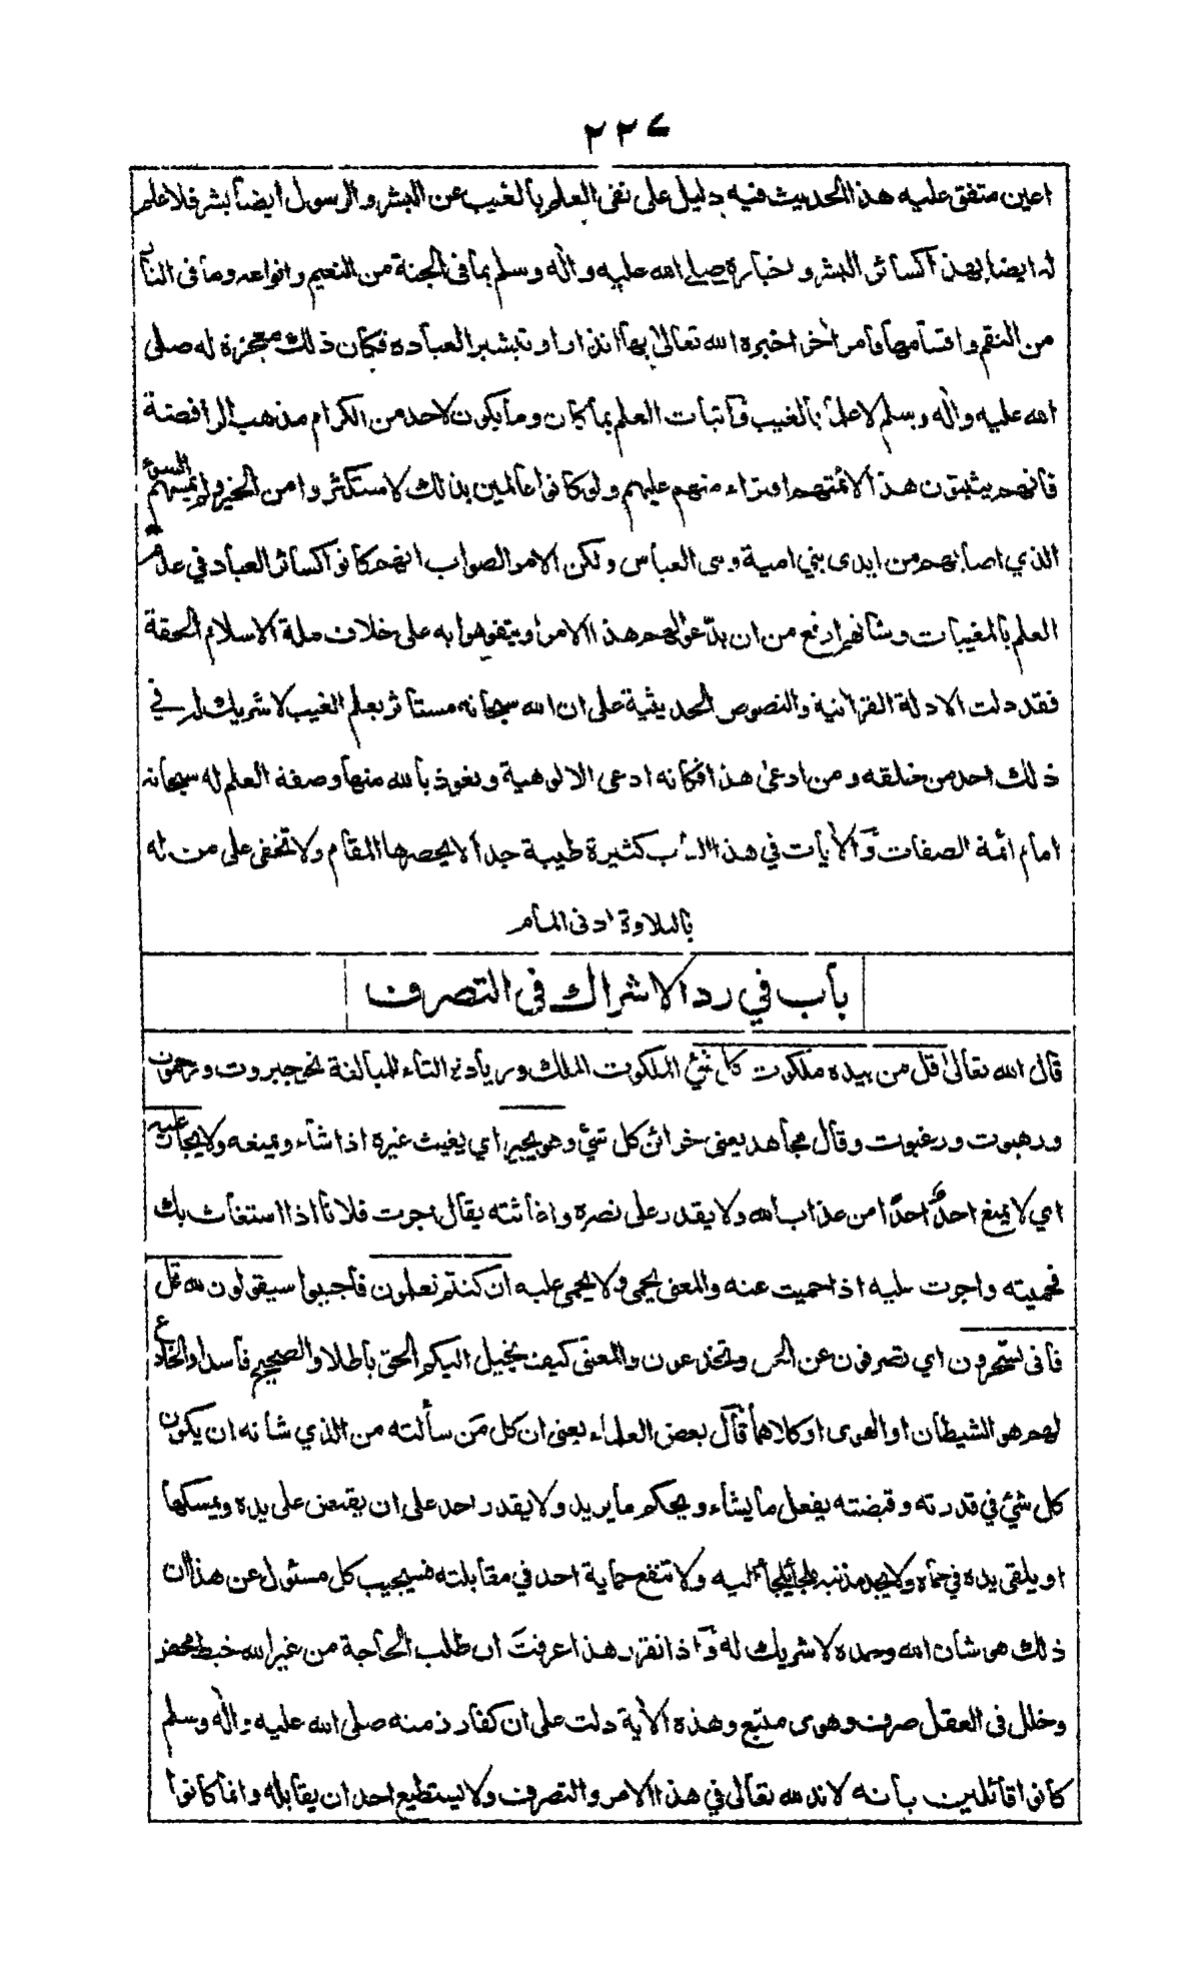 ٢٢٧
اعين متفق عليه هذا الحديث فيه دليل على نفى العلم بالغيب عن البشر والرسول ايضا بشر فلا علم
له ايضا بهذا كسائر البشر واخباره صلى الله عليه واله وسلم بما فى الجنة من النعيم وانواعه وما فى النار
من النقم واقسامها وامر اخر اخبره الله تعالى بها انذارا وتبشيرا لعباده فكان ذلك معجزة له صلى
الله عليه واله وسلم لا علما بالغيب فاثبات العلم بما كان وما يكون لاحد من الكرام مذهب الرافضة
فانهم يثبتون هذا لائمتهم افتراء منهم عليهم ولو كانوا عالمين بذلك لاستكثروا من الخير ولم يمسهم السوء
الذي اصابهم من ايدى بني امية وبنى العباس ولكن الامر الصواب انهم كانوا كسائر العباد في عدم
العلم بالمغيبات وشانهم ارفع من ان يدّعوا لهم هذا الامر او يتفوهوا به على خلاف ملة الاسلام الحقة
فقد دلت الادلة القرانية والنصوص الحديثية على ان الله سبحانه مستأثر بعلم الغيب لا شريك له في
ذلك احد من خلقه ومن ادعى هذا فكانه ادعى الالوهية ونعوذ بالله منها وصفة العلم له سبحانه
امام ائمة الصفات والايات في هذا الباب كثيرة طيبة جدا لا يحصرها المقام ولا تخفى على من له
بالتلاوة ادنى المام
باب في رد الاشراك فى التصرف
قال الله تعالى قل من بيده ملكوت كل شئ الملكوت الملك وزيادة التاء للمبالغة نحو جبروت ورحموت
ورهبوت ورغبوت وقال مجاهد يعنى خزائن كل شئ وهو يجير اي يغيث غيره اذا شاء ويمنعه ولا يجار عليه
اي لا يمنع احدٌ احدًا من عذاب الله ولا يقدر على نصره واغاثته يقال اجرت فلانا اذا استغاث بك
فحميته واجرت عليه اذا حميت عنه والمعنى يحمى ولا يحمى عليه ان كنتم تعلمون فاجيبوا سيقولون لله قل
فانى تسحرون اي تصرفون عن الحق وتخدعون والمعنى كيف يخيل اليكم الحق باطلا والصحيح فاسدا والخادع
لهم هو الشيطان او الهوى او كلاهما قال بعض العلماء يعنى ان كل مَن سألته من الذي شانه ان يكون
كل شئ في قدرته وقبضته يفعل ما يشاء ويحكم ما يريد ولا يقدر احد على ان يقبض على يده ويمسكها
او يلقى يده في حماه ولا يجد مذنبه ملجأ يلجأ اليه ولا تنفع حماية احد في مقابلته فسيجيب كل مسئول عن هذا ان
ذلك هى شان الله وحده لا شريك له واذا تقرر هذا عرفت ان طلب الحاجة من غير الله خبط محض
وخلل فى العقل صرف وهوى متبع وهذه الاية دلت على ان كفار زمنه صلى الله عليه واله وسلم
كانوا قائلين بانه لا ند لله تعالى في هذا الامر والتصرف ولا يستطيع احد ان يقابله وانما كانوا